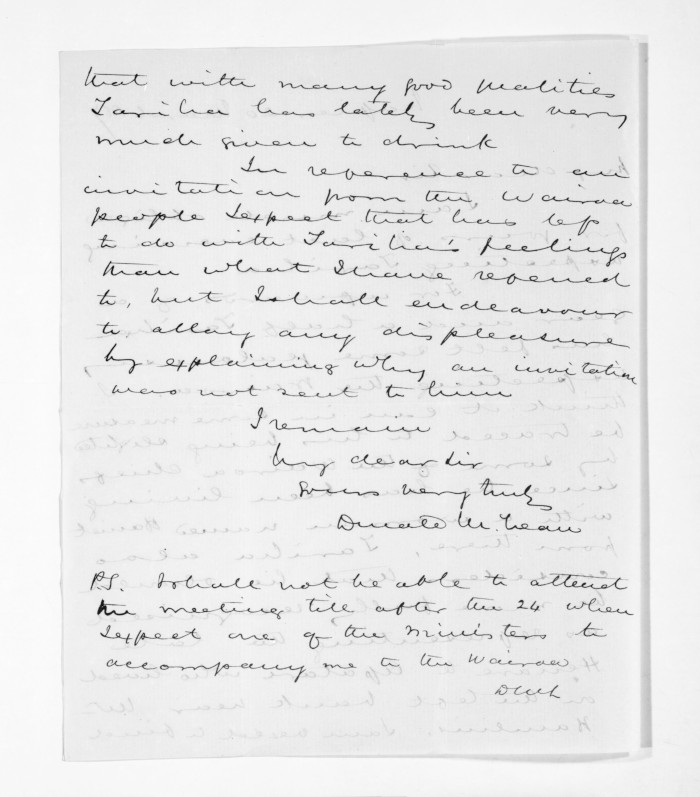 that with many good qualities
Tariha has lately been very
much given to drink
In reference to an
invitation from the Wairoa
people I expect that has less
to do with Tariha's feelings
than what I have refered
to, but I shall endeavour
to allay any displeasure
by explaining why an invitation
was not sent to him
I remain
My dear Sir
Yours very truly
Donald McLean
P.S. I shall not be able to attend
the meeting till after the 24 when
I expect one of the Ministers to
accompany me to the Wairoa
DMcL